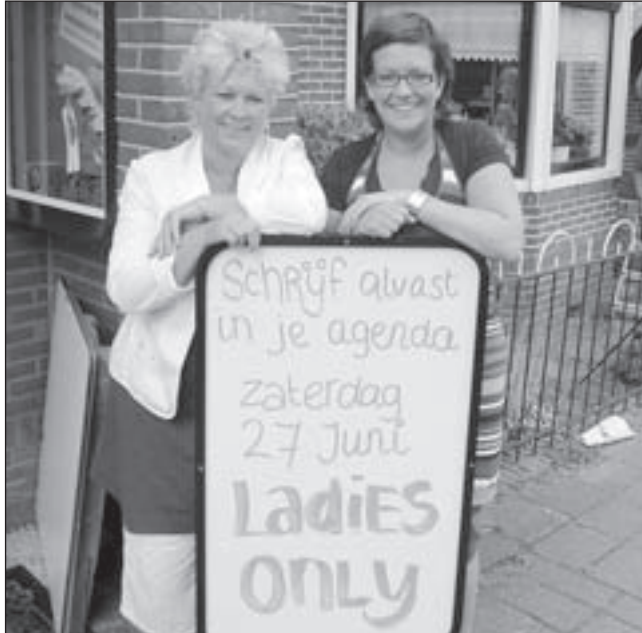 Schrijf alvast
in je agenda
zaterdag
27 Juni
LadiES
ONLY